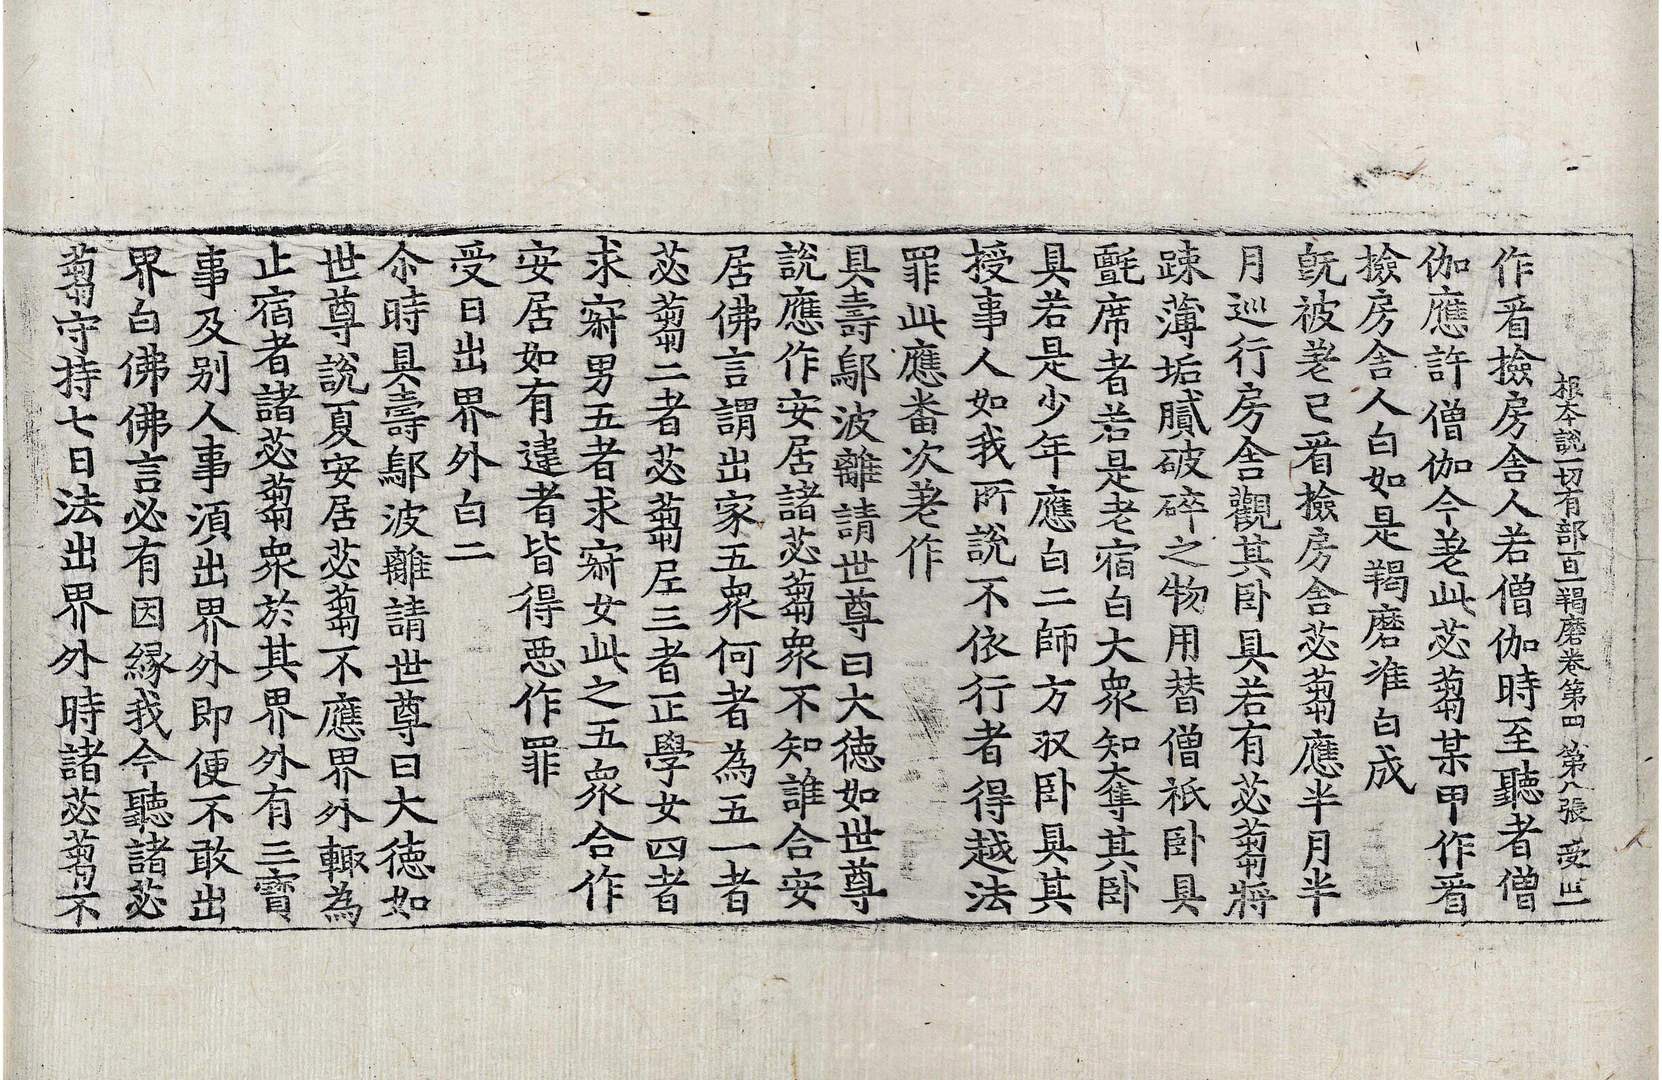 根本說一切有部百一羯磨卷第四 第八張 受
作㸔撿房舎人若僧伽時至聽者僧
伽應許僧伽伽今差此苾蒭某甲作㸔
撿房舎人白如是羯磨准白成
旣被差已㸔撿房舎苾蒭應半月半
月巡行房舎觀其卧具若有苾蒭將
踈薄垢膩破碎之物用替僧祇卧具
氈席者若是老宿白大衆知奪其卧
具若是少年應白二師方収卧具其
授事人如我所說不依行者得越法
罪此應畨次差作
具壽鄔波離請世尊曰大徳如世尊
說應作安居諸苾蒭衆不知誰合安
居佛言謂出家五衆何者為五一者
苾蒭二者苾蒭尼三者正學女四者
求寂男五者求寂女此之五衆合作
安居如有違者皆得惡作罪
受日出界外白二
尒時具壽鄔波離請世尊曰大徳如
世尊說夏安居苾蒭不應界外輙為
止宿者諸苾蒭衆於其界外有三寳
事及别人事湏出界外即便不敢出
界白佛佛言必有因緣我今聽諸苾
蒭守持七日法出界外時諸苾蒭不